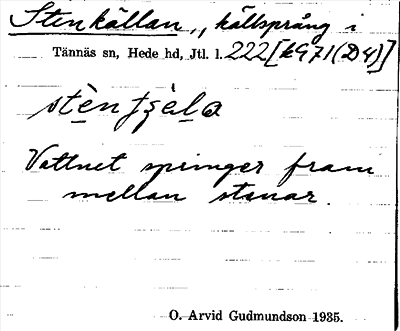 Stenkällan,, källsprång i
Tännäs sn, Hede hd, Jtl. l. 222 [kG71(D4)]
Vattnet springer fram
mellan stenar.
O. Arvid Gudmundson 1935.